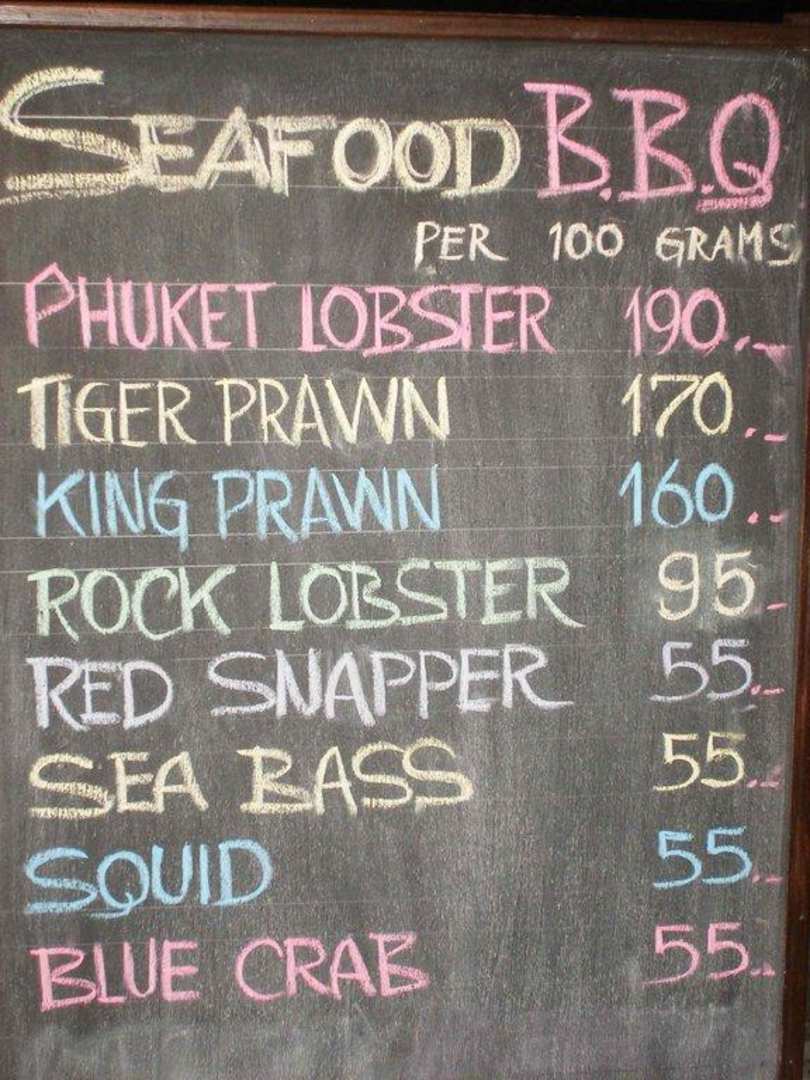 SEAFOOD B.B.Q
PER 100 GRAMS
PHUKET LOBSTER 190.-
TIGER PRAWN 170.-
KING PRAWN 160.-
ROCK LOBSTER 95.-
RED SNAPPER 55.-
SEA BASS 55.-
SQUID 55.-
BLUE CRAB 55.-